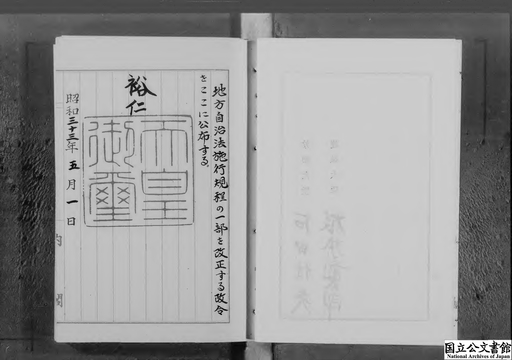 地方自治法施行規程の一部を改正する政令
をここに公布する。
裕仁
天皇
御璽
昭和三十三年五月一日
内閣
国立公文書館
National Archives of Japan